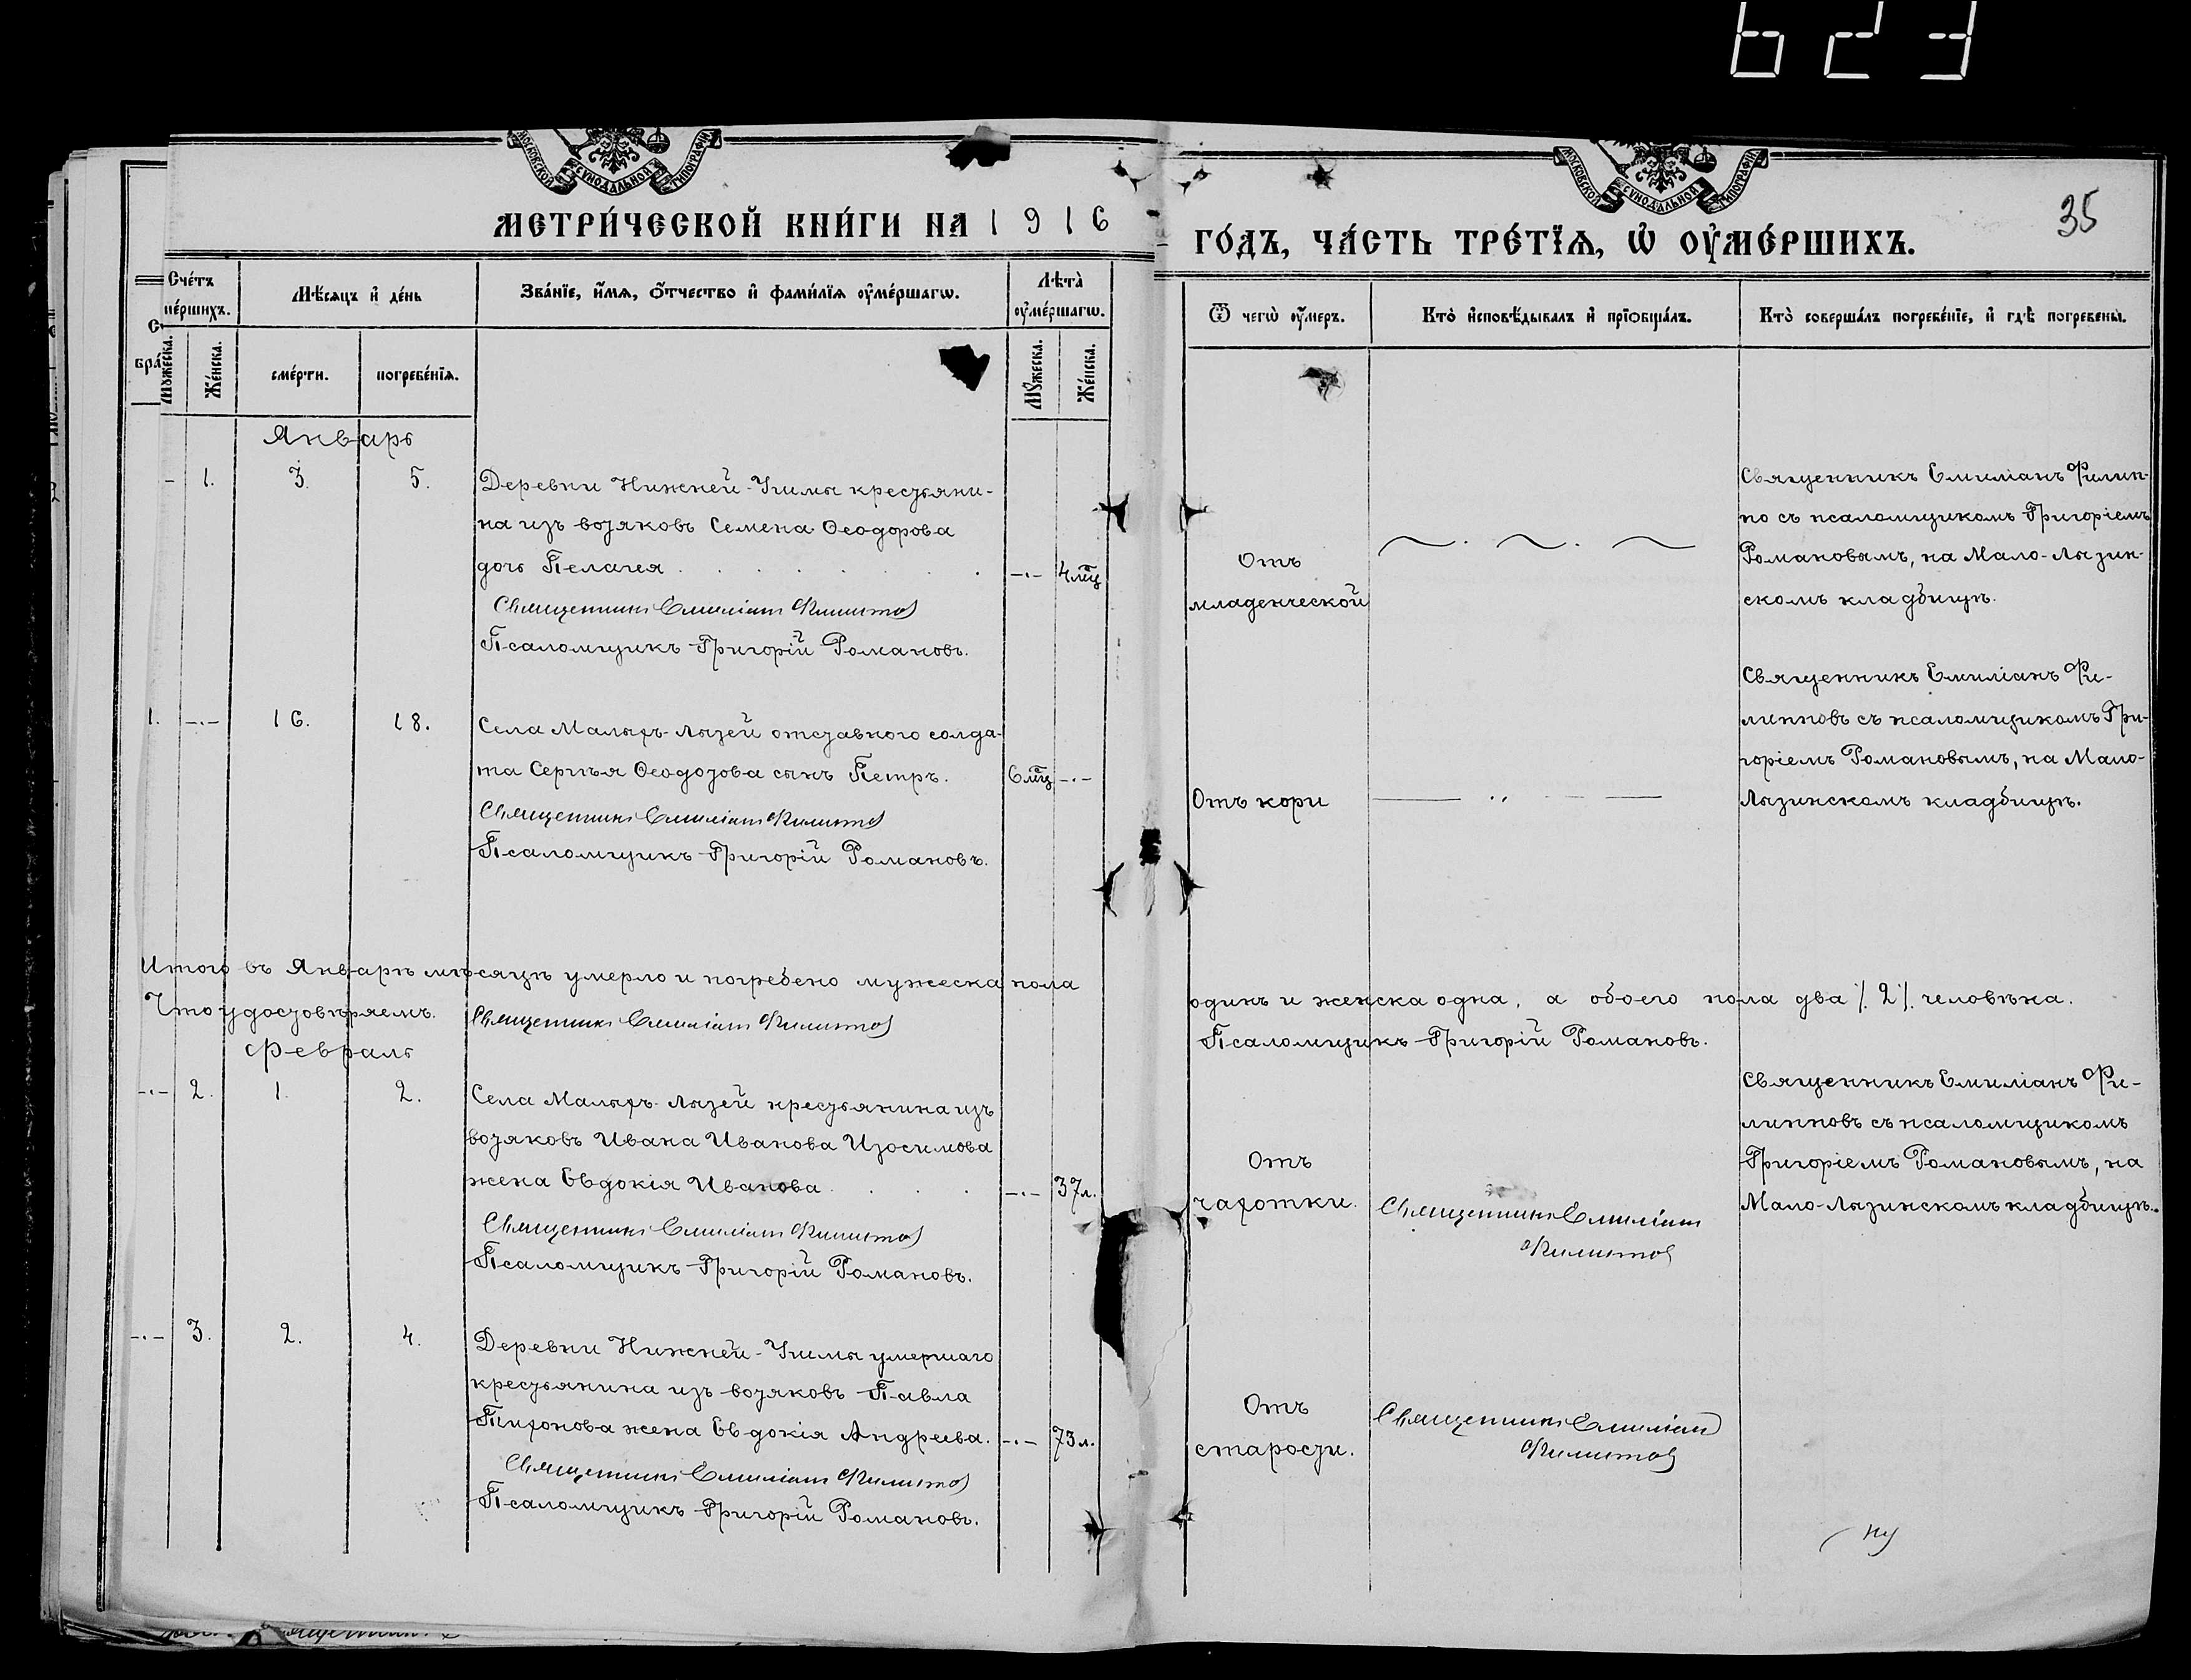 623
МОСКОВСКОЙ СѴНОДАЛЬНОЙ ТИПОГРАФІИ
МОСКОВСКОЙ СѴНОДАЛЬНОЙ ТИПОГРАФІИ
35
МЕТРИ́ЧЕСКОЙ КНИ́ГИ НА 1916
ГО́ДЪ, ЧА́СТЬ ТРЕ́ТЇѦ, Ѡ҆ ОУ҆МЕ́РШИХЪ.
Сче́тъ
ме́ршихъ.
Мꙋ́жеска.
Же́нска.
Мѣ́сѧцъ и҆ де́нь
сме́рти.
погребе́нїѧ.
Зва́нїе, и҆́мѧ, ѻ҆́тчество и҆ фами́лїѧ оу҆ме́ршагѡ.
Лѣ́та
оу҆ме́ршагѡ.
Мꙋ́жеска.
Же́нска.
Ѿ чегѡ̀ оу҆́меръ.
Кто̀ и҆сповѣ́дывалъ и҆ прїѡбща́лъ.
Кто̀ соверша́лъ погребе́нїе, и҆ гдѣ̀ погребены̀.
Январь
- 1. 3. 5.
Деревни Нижней-Учмы крестьяни-
на изъ вотяковъ Семена Ѳеодорова
дочь Пелагея . . . . . . . -.- 4 мц
Священникъ Емиліанъ Филиппов
Псаломщикъ Григорій Романовъ.
Отъ
младенческой
Священникъ Емиліанъ Филип-
по съ псаломщикомъ Григоріемъ
Романовымъ, на Мало-Лызин-
скомъ кладбищѣ.
1. -.- 16. 18.
Села Малыхъ-Лызей отставного солда-
та Сергѣя Ѳеодотова сынъ Петръ. 6 мц -.-
Священникъ Емиліанъ Филиппов
Псаломщикъ Григорій Романовъ.
Отъ кори
Священникъ Емиліанъ Фи-
липповъ съ псаломщикомъ Гри-
горіемъ Романовымъ, на Мало-
Лызинскомъ кладбищѣ.
Итого въ Январѣ мѣсяцѣ умерло и погребено мужеска пола
одинъ и женска одна, а обоего пола два /.2/. человѣка.
Что удостовѣряемъ. Священникъ Емиліанъ Филиппов
Псаломщикъ Григорій Романовъ.
Февраль
-.- 2. 1. 2.
Села Малыхъ-Лызей крестьянина изъ
вотяковъ Ивана Иванова Изосимова
жена Евдокія Иванова . . . -.- 37 л.
Священникъ Емиліанъ Филиппов
Псаломщикъ Григорій Романовъ.
Отъ
чахотки.
Священникъ Емиліанъ
Филиппов
Священникъ Емиліанъ Фи-
липповъ съ псаломщикомъ
Григоріемъ Романовымъ, на
Мало-Лызинскомъ кладбищѣ.
-.- 3. 2. 4.
Деревни Нижней-Учмы умершаго
крестьянина изъ вотяковъ Павла
Тихонова жена Евдокія Андреева. -.- 73 л.
Священникъ Емиліанъ Филиппов
Псаломщикъ Григорій Романовъ.
Отъ
старости.
Священникъ Емиліанъ
Филиппов